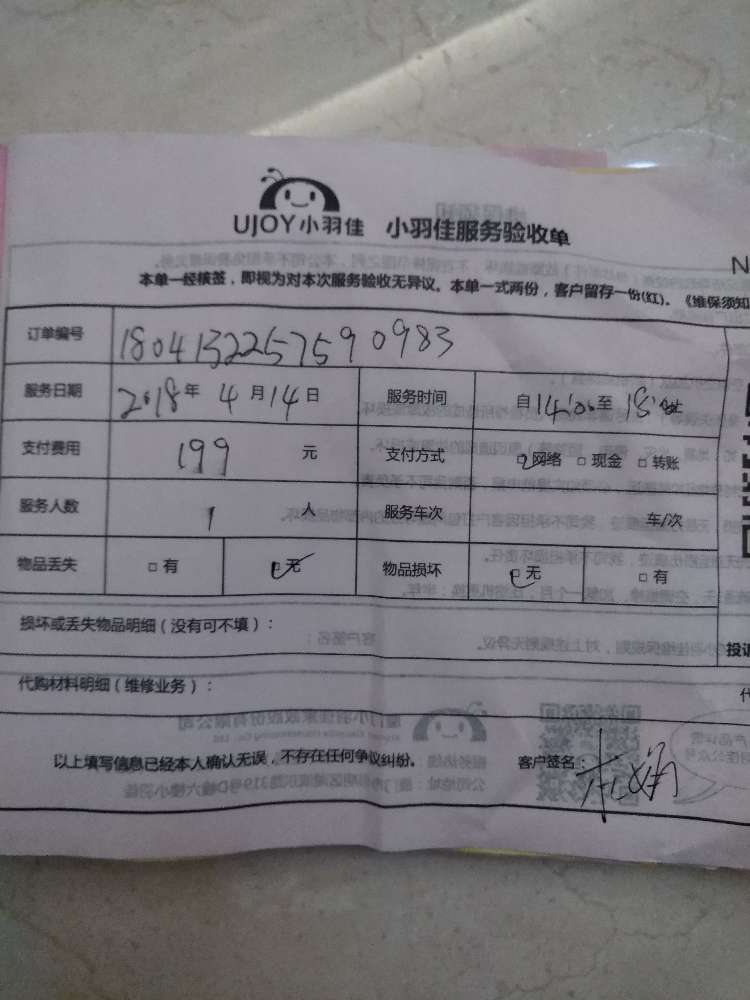 UJOY小羽佳 小羽佳服务验收单
N
本单一经核签，即视为对本次服务验收无异议。本单一式两份，客户留存一份(红)。《维保须知
订单编号 180413225759 0983
服务日期 2018年 4月14日 服务时间 自14:00至18:00止
支付费用 199 元 支付方式 □网络 □现金 □转账
服务人数 1 人 服务车次 车/次
物品丢失 □有 □无 物品损坏 □无 □有
损坏或丢失物品明细（没有可不填）：
投诉
代购材料明细（维修业务）：
以上填写信息已经本人确认无误，不存在任何争议纠纷。 客户签名：